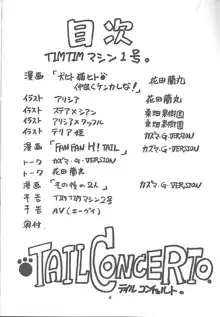 目次
TIMTIMマシン1号。
漫画「犬ヒト猫ヒト
仲良くケンカしな!」 花田蘭丸
イラスト アリシア 花田蘭丸
イラスト ステア×シアン 桑畑果樹園
イラスト アリシア×ワッフル 桑畑果樹園
イラスト テリア姫 カズマ・G-VERSION
漫画「FAN FAN H! TAIL」 カズマ・G-VERSION
トーク カズマ・G-VERSION
トーク 花田蘭丸
漫画「その後の2人」 カズマ・G-VERSION
予告 TIMTIMマシン2号
予告 AV(エーブイ)
奥付
TAIL CONCERTO.
テイルコンチェルト。